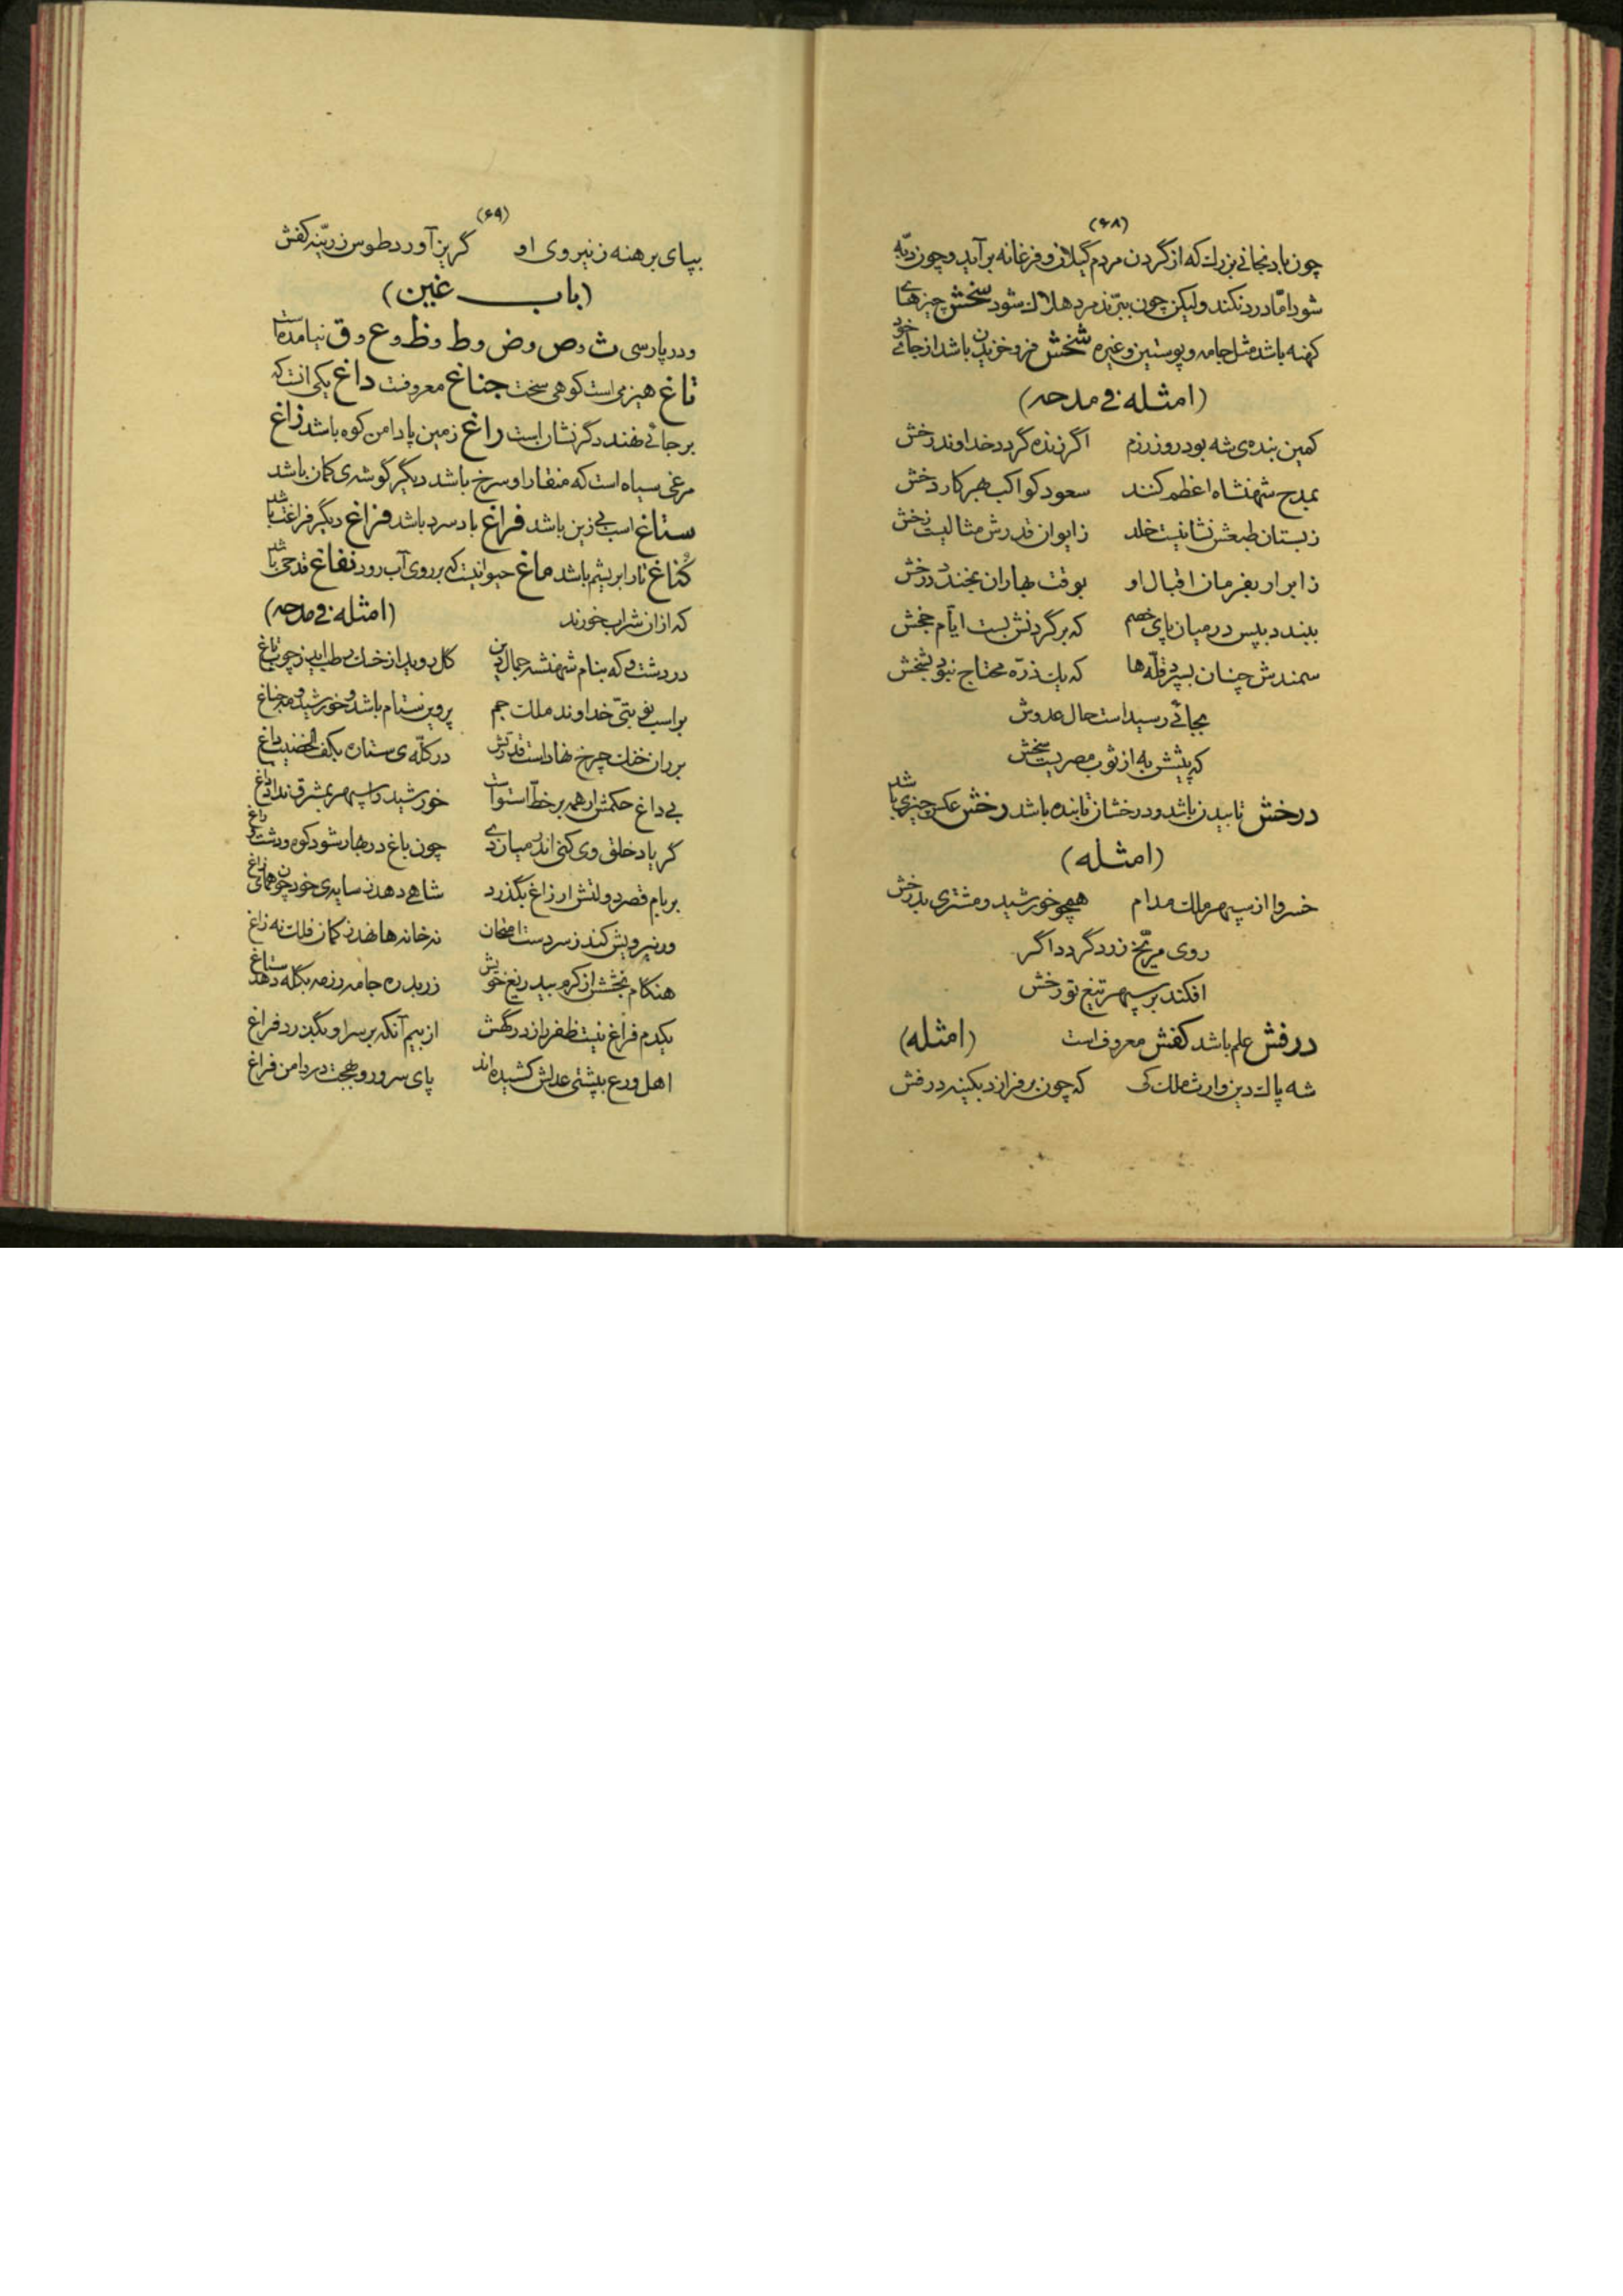 (۶۸)
چون بادنجانی بزرک که از گردن مردم گیلان و فرغانه برآید و چون دبّه
شود امّا درد نکند ولیکن چون ببرّند مرد هلاک شود سخش چیزهای
کهنه باشد مثل جامه و پوستین و غیره شخش فروخزیدن باشد از جای خود
(امثله فی مدحه)
کمین بنده‌ی شه بود روز رزم اگر زنده گردد خداوند رخش
بمدح شهنشاه اعظم کنند سعود کواکب بهر کار دخش
زبستان طبعش نشانیست خلد زایوان قدرش مثالیست زخش
زابر ار بفرمان اقبال او بوقت بهاران بخندد درخش
ببندد بپس در میان پای خصم که بر گردنش بست ایّام جخش
سمندش چنان بسپرد قلّه‌ها که یک ذرّه محتاج نبود بشخش
بجائی رسید است حال عدوش
که پیشش به از ثوب مصریست سخش
درخش تابیدن باشد و درخشان تابنده باشد رخش عکس چیزی باشد
(امثله)
خسروا از سپهر ملک مدام همچو خورشید و مشتری بدرخش
روی مرّیخ زرد گردد اگر
افکند بر سپهر تیغ تو رخش
درفش علم باشد کفش معروف است (امثله)
شه پاک دین وارث ملک کی که چون بر فرازد بکینه درفش
(۶۹)
بپای برهنه ز نیروی او گریز آورد طوس زرّینه کفش
(باب غین)
و در پارسی ث و ص و ض و ط و ظ و ع و ق نیامده است
تاغ هیزمی است کوهی سخت جناغ معروفست داغ یکی آنست که
بر جائی نهند دگر نشان است راغ زمین پا دامن کوه باشد زاغ
مرغی سیاه است که منقار او سرخ باشد دیگر گوشه‌ی کمان باشد
ستاغ اسب بی زین باشد فراغ باد سرد باشد فراغ دیگر فراغت باشد
کُناغ تار ابریشم باشد ماغ حیوانیست که بر روی آب رود نفاغ قدحی باشد
که از آن شراب خورند (امثله فی مدحه)
در دشت که بنام شهنشه جمال دین کل دوید از خسک رطب اید ز چوب تاغ
بر اسب خداوند ملک جم پروین ستام باشد و خورشید و مه جناغ
بر ران خنک چرخ نهاد است قدرتش در کلّه‌ی ستاره بکف الخضیب داغ
بی داغ حکمش ار همه بر خطّ استواست خورشید را سپهر بمشرق نداد داغ
گر یاد خلق وی کنی اندر میان دی چون باغ در بهار شود کوه و دشت و راغ
بر بام قصر دولتش ار زاغ بگذرد شاهی دهد ز سایه‌ی خود چون همای زاغ
ور نیرویش کند ز سر دست امتحان نه خانه‌ها نهد ز کمان فلک نه زاغ
هنگام بخشش از کرم بیدریغ خویش زر بدره جامه رزمه بگله دهد ستاغ
یکدم فراغ نیست ظفر را ز درگهش از بیم آنکه بر سر او بگذرد فراغ
اهل ورع بپشتی عدلش کشیده‌اند پای سرور و بهجت در دامن فراغ